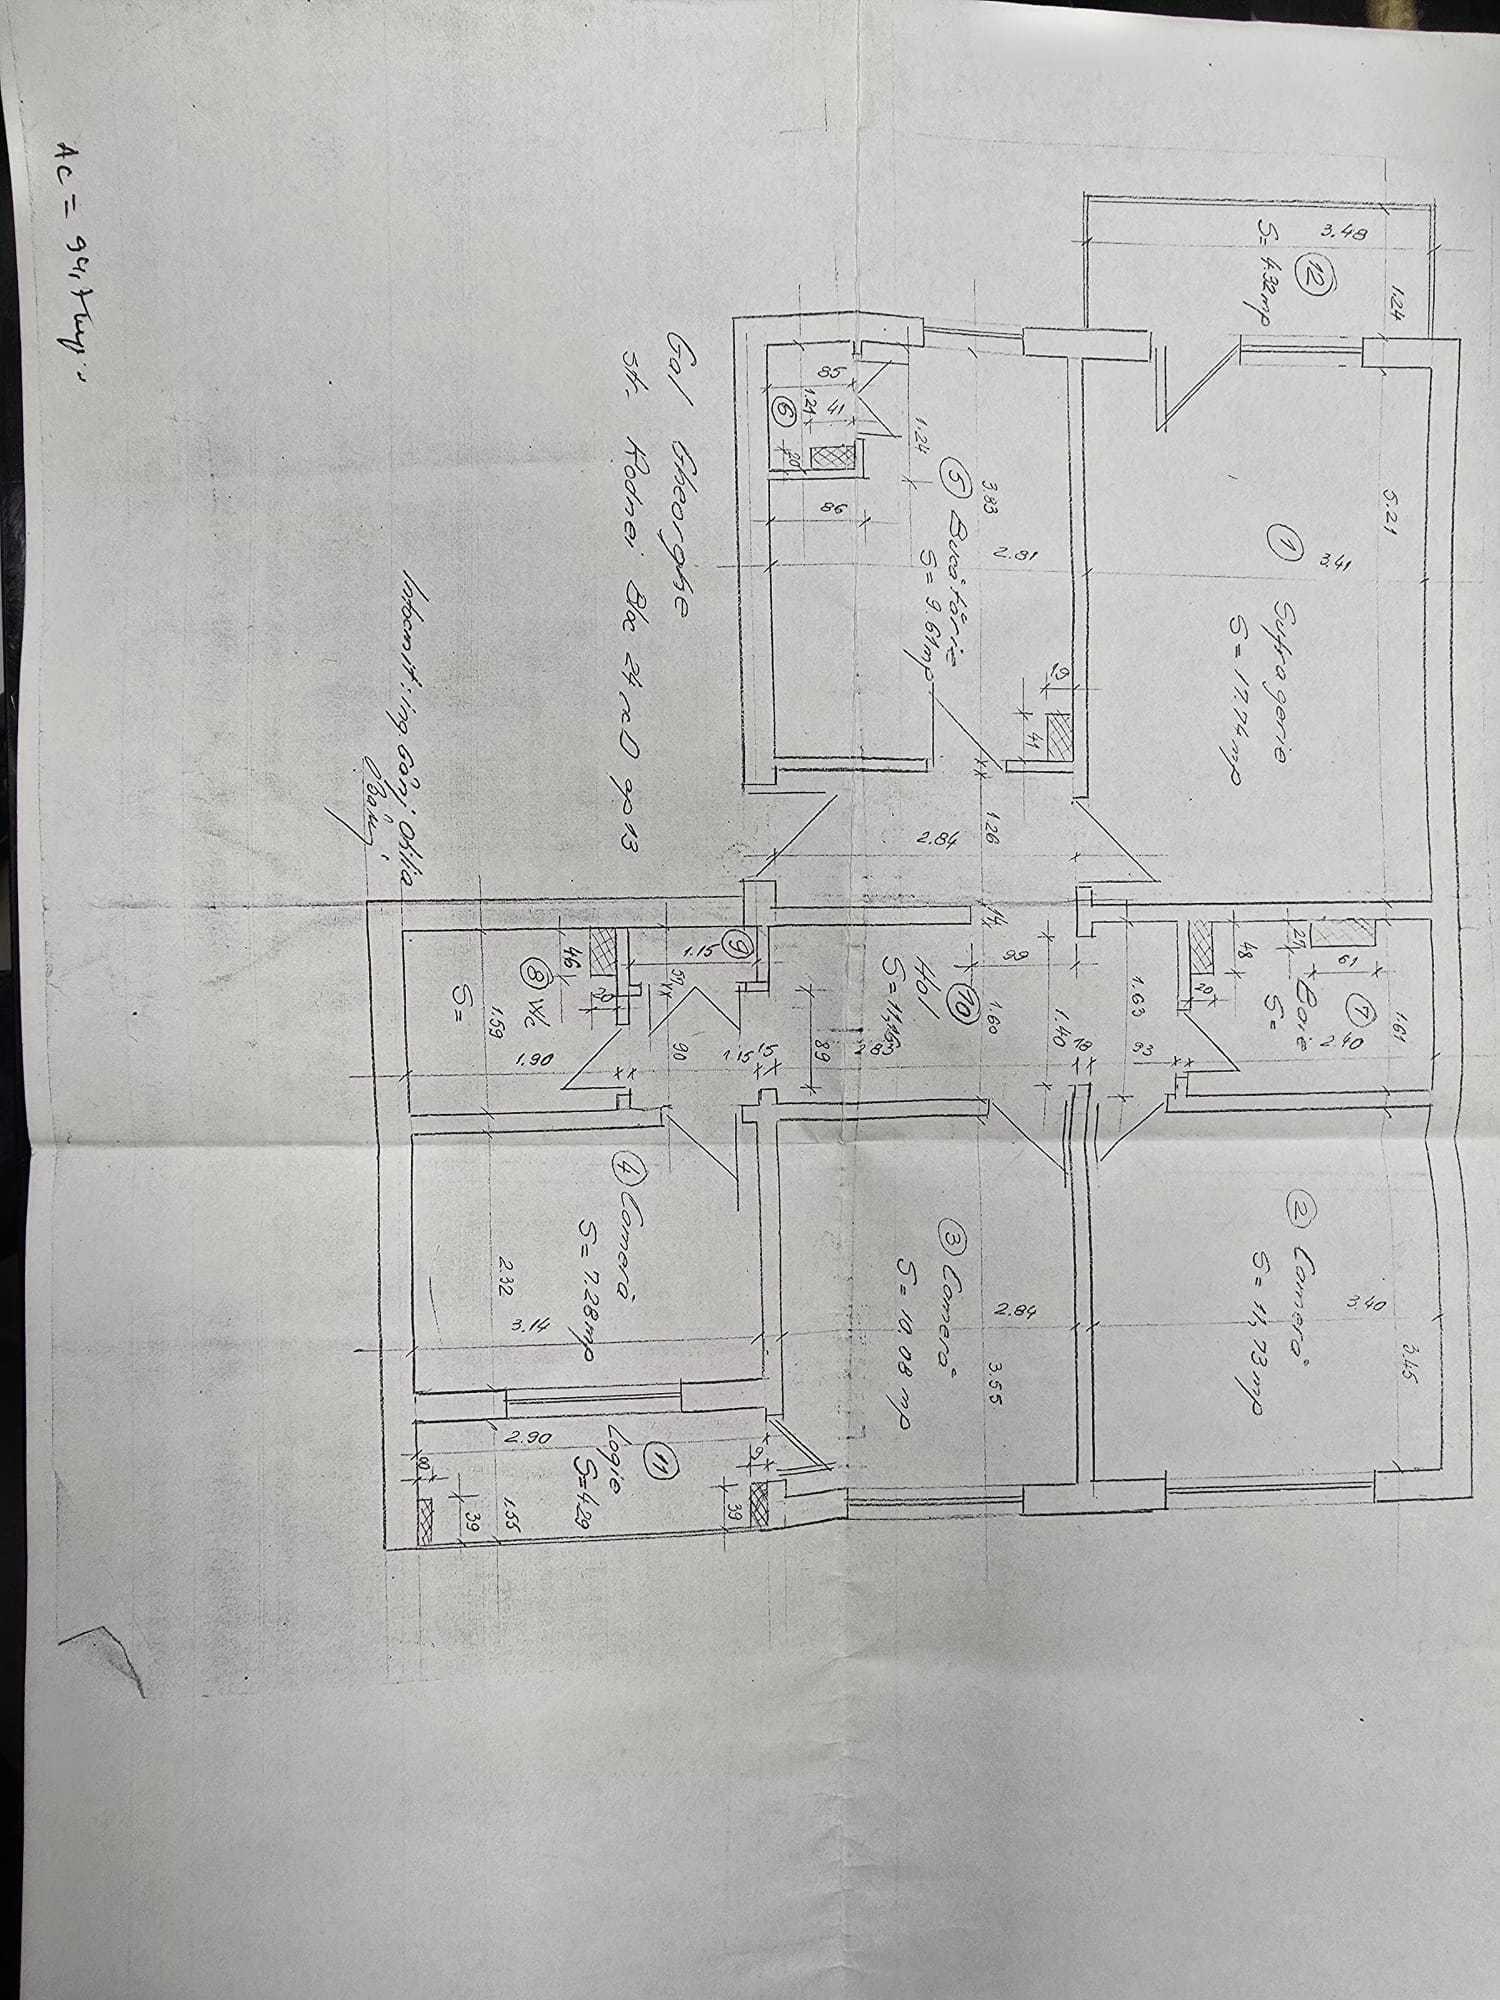 3.48
12
S= 4.32mp
1.24
5.21
3.41
1
Sufragerie
S= 17.74mp
85
41
1.21
6
20
86
1.24
5 Bucătărie
S= 9.61mp
3.83
2.81
19
41
1.26
2.84
14
99
10
Hol
S=11,16
1.60
1.40
18
1.63
93
48
20
27
61
7
Baie
S=
2.40
1.61
9
1.15
50
46
20
8 Wc
S=
1.59
1.90
90
1.15
15
89
2.83
4 Cameră
S= 7.28mp
2.32
3.14
3 Cameră
S= 10.08 mp
2.84
3.55
2 Cameră
S= 11,73mp
3.40
3.45
11
Logie
S=4.29
2.90
1.55
39
39
Gal Gheorghe
str. Rodnei Bloc 24 sc D ap 13
Intocmit: ing
Ac =